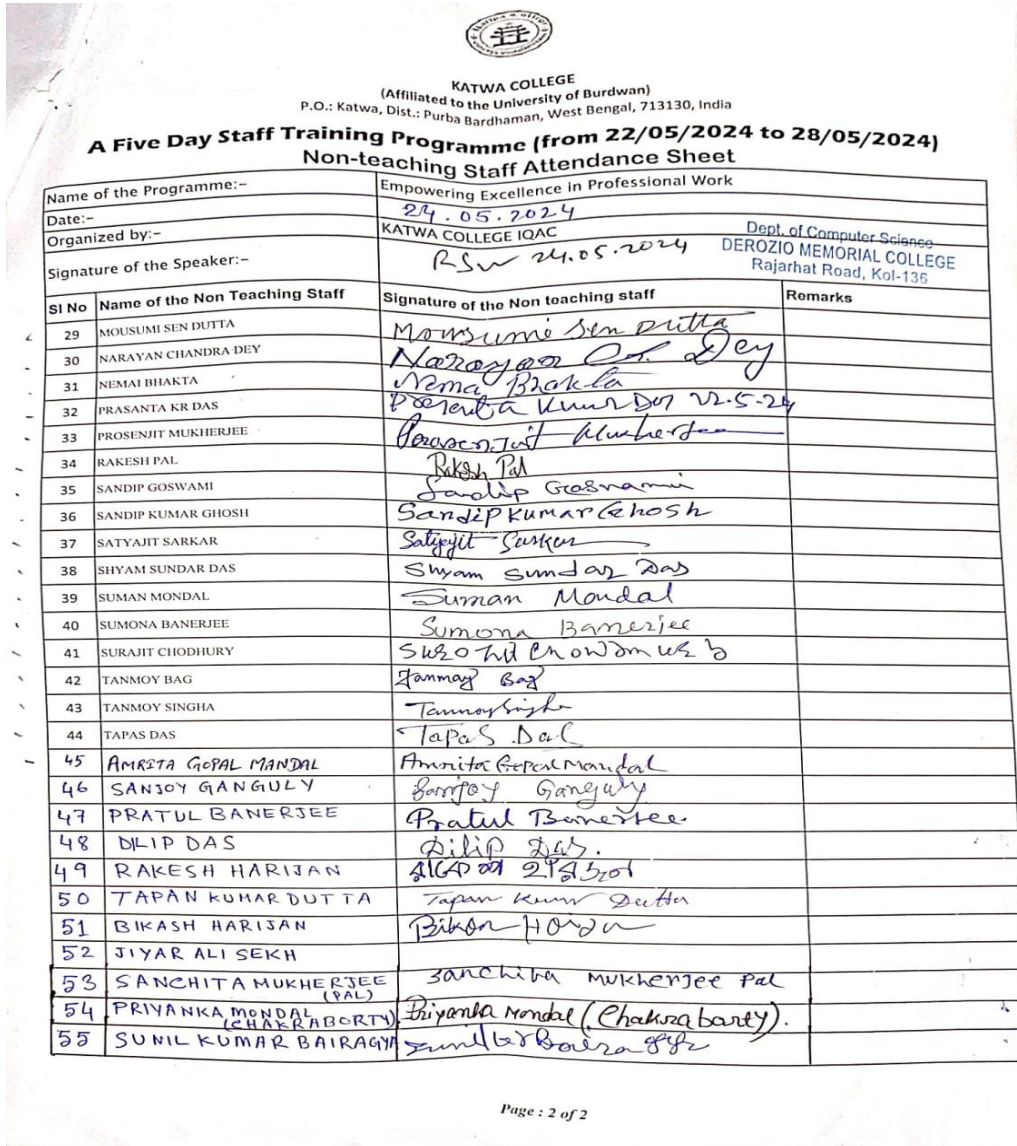 KATWA COLLEGE
(Affiliated to the University of Burdwan)
P.O.: Katwa, Dist.: Purba Bardhaman, West Bengal, 713130, India
A Five Day Staff Training Programme (from 22/05/2024 to 28/05/2024)
Non-teaching Staff Attendance Sheet
Name of the Programme:- Empowering Excellence in Professional Work
Date:- 24.05.2024
Organized by:- KATWA COLLEGE IQAC
Signature of the Speaker:- 24.05.2024
Dept. of Computer Science
DEROZIO MEMORIAL COLLEGE
Rajarhat Road, Kol-136
Sl No Name of the Non Teaching Staff Signature of the Non teaching staff Remarks
29 MOUSUMI SEN DUTTA Mousumi Sen Dutta
30 NARAYAN CHANDRA DEY Narayan Ch. Dey
31 NEMAI BHAKTA Nemai Bhakta
32 PRASANTA KR DAS Prasanta Kumar Das 22-5-24
33 PROSENJIT MUKHERJEE Prosenjit Mukherjee
34 RAKESH PAL Rakesh Pal
35 SANDIP GOSWAMI Sandip Goswami
36 SANDIP KUMAR GHOSH Sandip Kumar Ghosh
37 SATYAJIT SARKAR Satyajit Sarkar
38 SHYAM SUNDAR DAS Shyam Sundar Das
39 SUMAN MONDAL Suman Mondal
40 SUMONA BANERJEE Sumona Banerjee
41 SURAJIT CHODHURY
42 TANMOY BAG Tanmay Bag
43 TANMOY SINGHA Tanmoy Singha
44 TAPAS DAS Tapas Das
45 AMRITA GOPAL MANDAL Amrita Gopal Mandal
46 SANJOY GANGULY Sanjoy Ganguly
47 PRATUL BANERJEE Pratul Banerjee.
48 DILIP DAS Dilip Das.
49 RAKESH HARIJAN
50 TAPAN KUMAR DUTTA Tapan Kumar Dutta
51 BIKASH HARIJAN
52 JIYAR ALI SEKH
53 SANCHITA MUKHERJEE (PAL) Sanchita Mukherjee Pal
54 PRIYANKA MONDAL (CHAKRABORTY) Priyanka Mondal (Chakrabarty).
55 SUNIL KUMAR BAIRAGYA
Page : 2 of 2